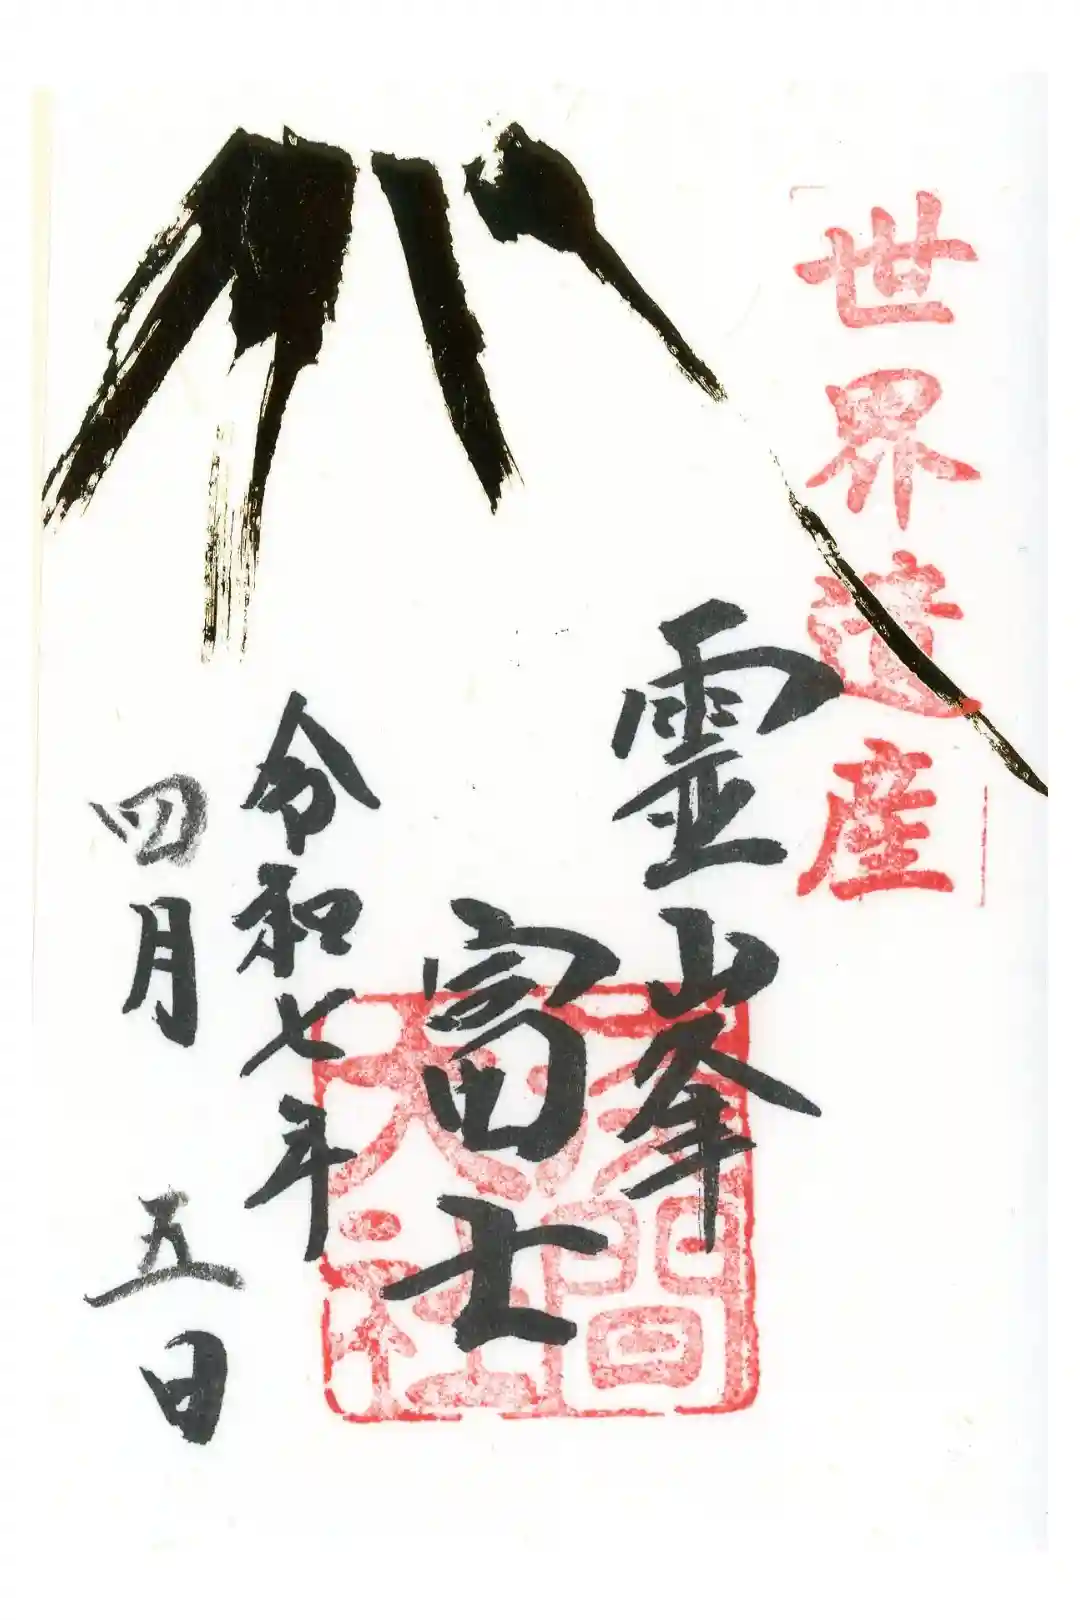 世界遺産
霊峯
富士
浅間
大社
令和七年
四月五日